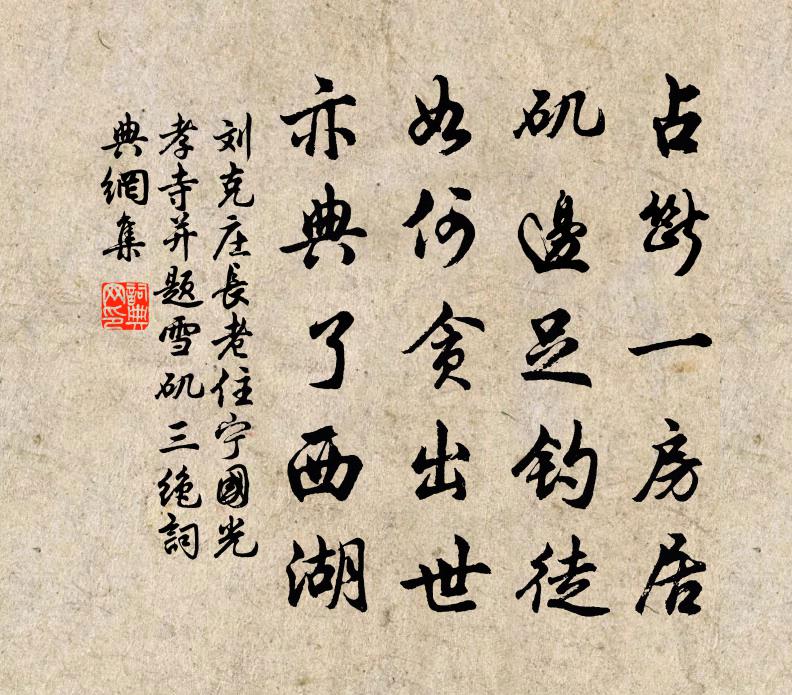 占斷一房居
矶邊足钓徒
如何贪出世
亦典了西湖
刘克庄長老住宁國光
孝寺并题雪矶三绝詞
典網集
詞典
网印